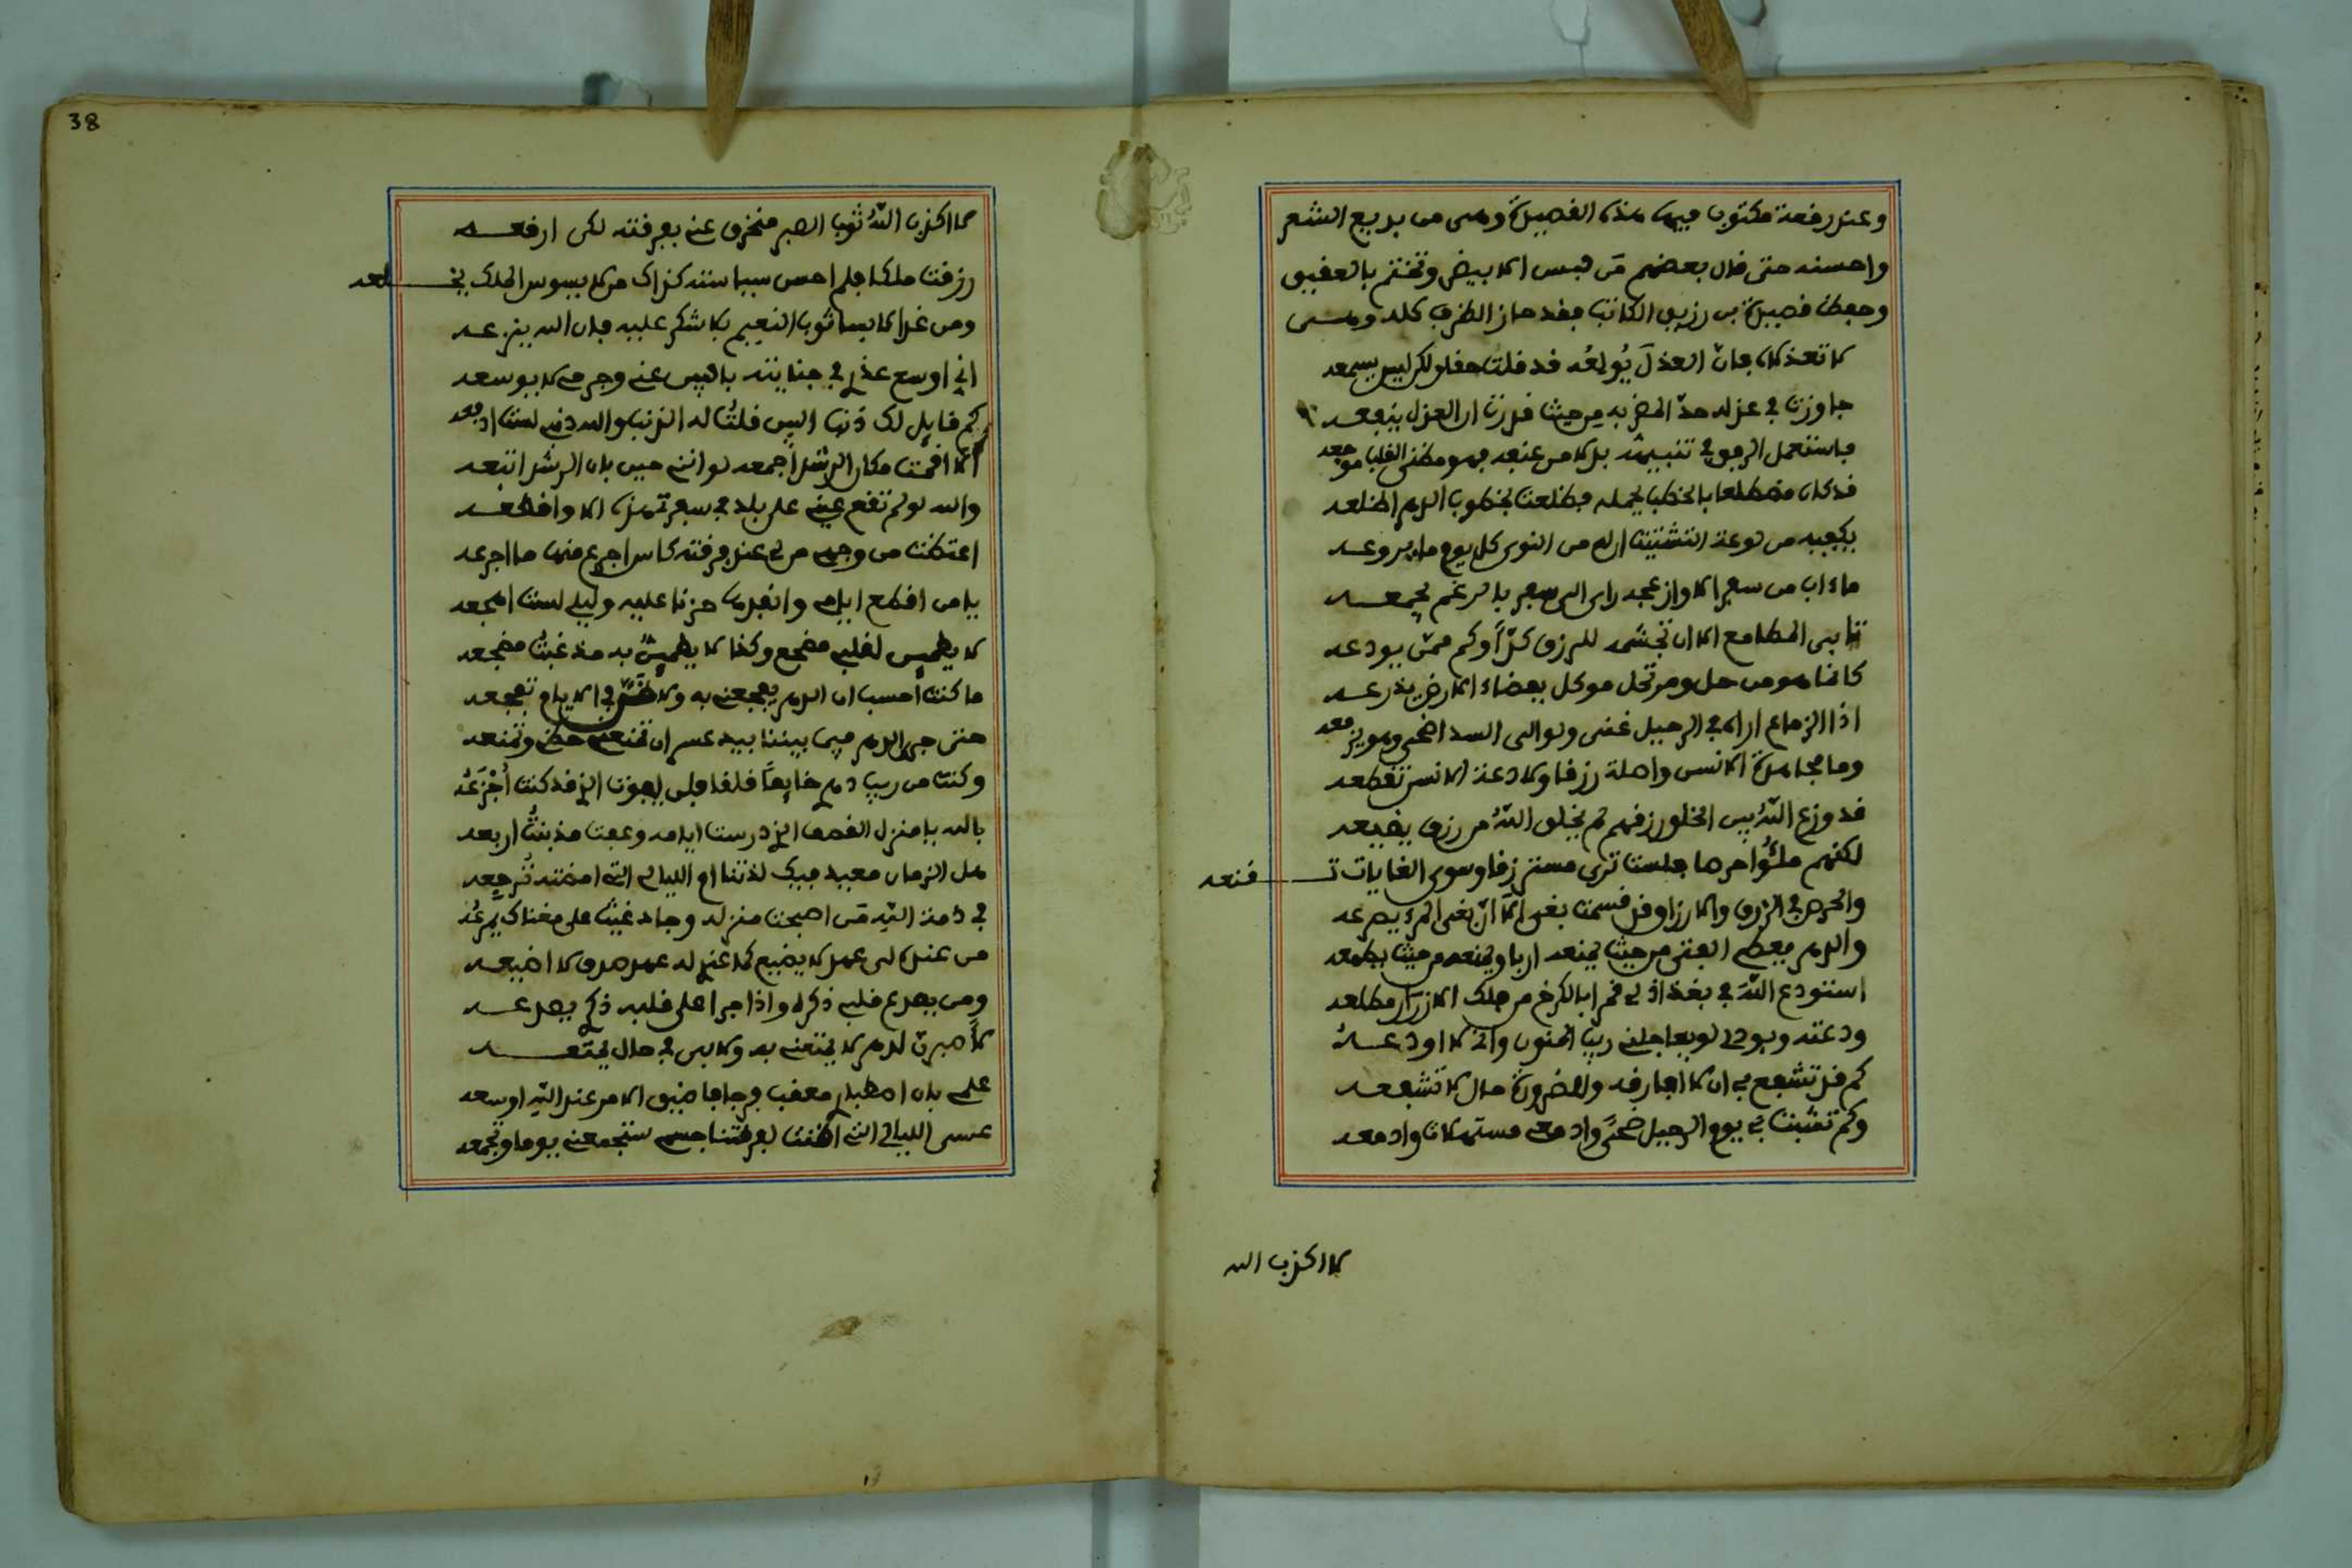 وعند رقعة مكتوب فيها هذه القصيدة وهى من بديع الشعر
واحسنه حتى قال بعضهم من لبس الابيض وتختم بالعقيق
وحفظ قصيدة بن رزيق الكاتب فقد حاز الظرف كله وهى
لا تعذلاه فان العذل يُولعُه قد قلت حقا ولكن ليس يسمعه
جاوزت في عذله حدّ المضر به من حيث قدرت ان العذل ينفعه
فاستعمل الرفق في تنبيهه بدلا من عنفه فهو مضنى القلب موجعه
قد كان مضطلعا بالخطب يحمله فضلعت بخطوب الدهر اضلعه
يكفيه من لوعة التشتيت ان له من النوى كل يوم ما يروعه
ماءاب من سفر الا وازعجه راى الى سفر بالرغم يجمعه
تابى المطامع الا ان تجشمه للرزق كدّاً وكم ممن يودعه
كانما هو من حل ومرتحل موكل بفضاء الارض يذرعه
اذا الزماع اراه في الرحيل غنى ولو الى السد اضحى وهو يزمعه
وما مجاهدة الانسن واصلة رزقا ولا دعة الانسن تقطعه
قد وزع اللّهُ بين الخلق رزقهم لم يخلق اللّهُ من رزق يضيعه
لكنهم ملئُوا حرصا فلست ترى مسترزقا وسوى الغايات تقنعه
والحرص في الرزق والارزاق قد قسمت بغى الّا انّ بغى المرء يصرعه
والدهر يعطى الفتى من حيث يمنعه اربا ويمنعه من حيث يطمعه
استودع اللّهَ في بغداذ لي قمرا بالكرخ من فلك الازرار مطلعه
ودعته وبودي لو يفاجلني ريب المنون واني لا اودعهُ
كم قد تشفع بي ان لا افارقه وللضرورة حال لا تشفعه
وكم تشبث بي يوم الرحيل ضحىً وادمعى مستهلات وادمعه
لا اكذب الله
38
لا اكذب اللّهُ ثوب الصبر منخرق عنى بفرقته لكن ارقعه
رزقت ملكا فلم احسن سياسته كذاك من لا يسوس الملك يخلعه
ومن غدا لابسا ثوب النعيم بلا شكر عليه فان الله ينزعه
اني اوسع عذري في جنايته بالبين عنى وجرمى لا يوسعه
كم قايل لك ذنب البين قلتُ له الذنب والله ذنبى لست ادفعه
الا اقمت مكان الرشد اجمعه لو اننى حين بان الرشد اتبعه
والله لو لم تقع عينى على بلد في سفرتى هذه الا واقطعه
اعتضت من وجه من لي عند فرقته كاس اجرع منها ما اجرعه
يا من اقطع ايامى وانفدها حزنا عليه وليلى لست اهجعه
لا يطمين لقلبى مضجع وكذا لا يطمينُّ به مذ غبتُ مضجعه
ما كنت احسب ان الدهر يفجعنى به ولا في الايام تفجعه
حتى جرى الدهر فيما بيننا بيد عسر ان تمنعنى حظى وتمنعه
وكنت من ريب دهري خايفاً قلقا فلن لفوت الذي قد كنت اُجْزَعُهُ
بالله يا منزل القصف الذي درست ايامه وعفت مذ بنتُ اربعه
هل الزمان معيد فيك لذتنا ام الليالي التي امضته تُرجعه
في ذمة اللّه من اصبحت منزله وجاد غيث على مغناك يمرعُه
من عنده لى عهد لا يضيع كما عندي له عهد صدق لا اضيعه
ومن يصدع قلبي ذكره واذا جرا على قلبه ذكري يصدعه
لأصبرنّ لدهر لا يمتعنى به ولا بى في حال يمتعه
علمى بان اصطبارى معقب فرجا ما ضيق الامر عند اللّه اوسعه
عسى الليالي التي اضنت بفرقتنا جسمى ستجمعنى يوما وتجمعه